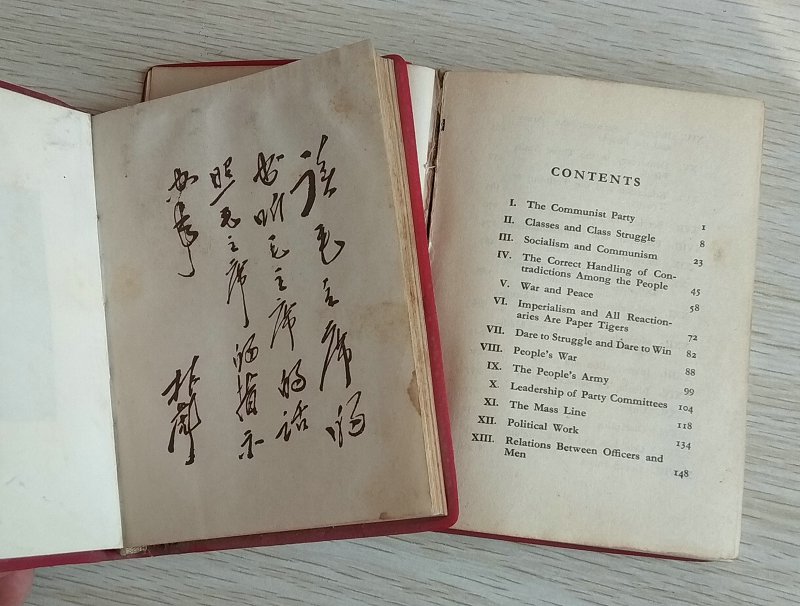 读毛主席的
书听毛主席的话
照毛主席的指示
办事
林彪
CONTENTS
I. The Communist Party 1
II. Classes and Class Struggle 8
III. Socialism and Communism 23
IV. The Correct Handling of Con-
tradictions Among the People 45
V. War and Peace 58
VI. Imperialism and All Reaction-
aries Are Paper Tigers 72
VII. Dare to Struggle and Dare to Win 82
VIII. People's War 88
IX. The People's Army 99
X. Leadership of Party Committees 104
XI. The Mass Line 118
XII. Political Work 134
XIII. Relations Between Officers and
Men 148